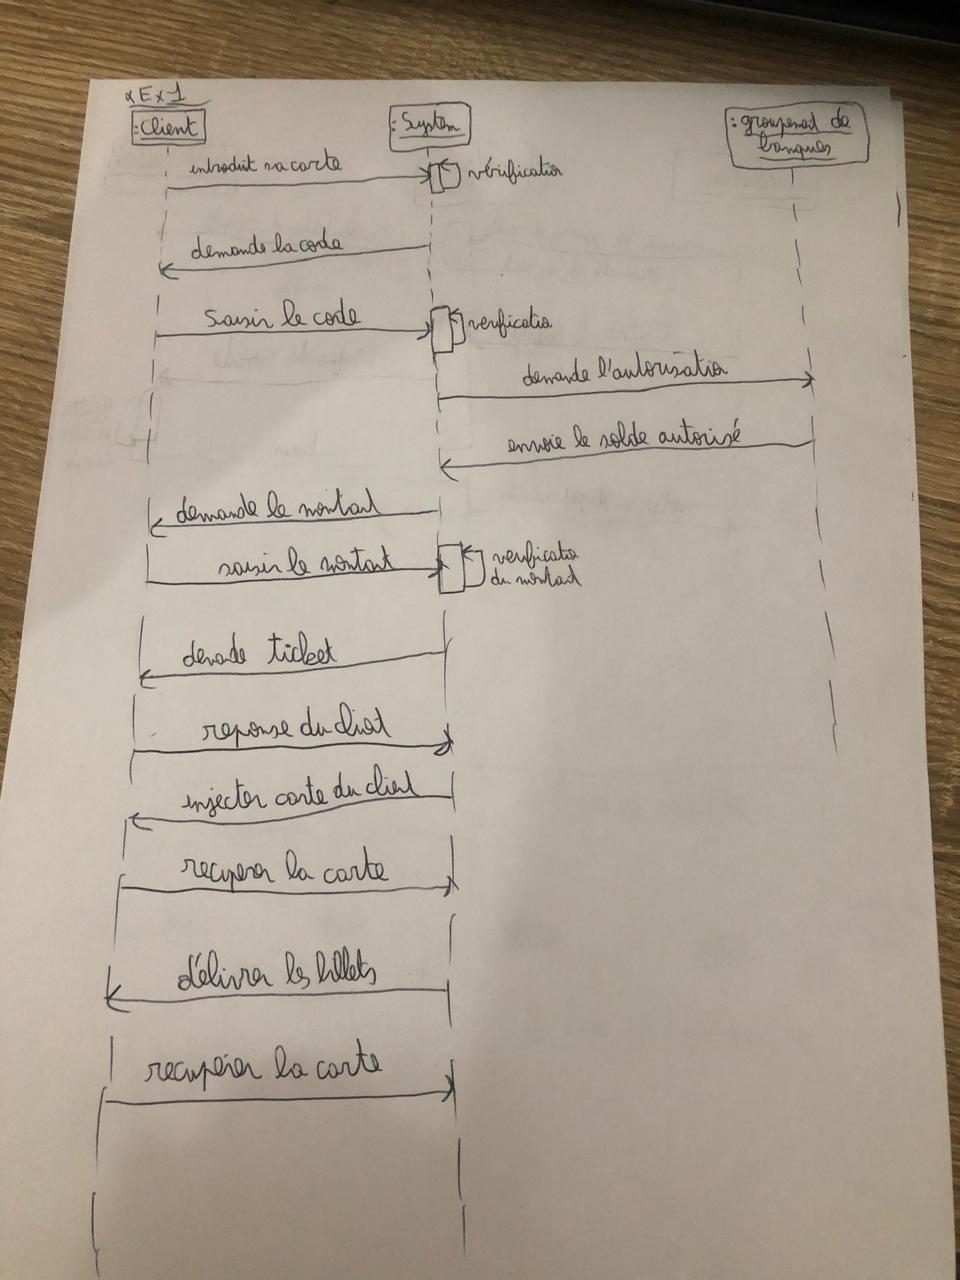 Ex1
:Client
:System
:groupement de
banques
introduit sa carte
vérification
demande la code
saisir le code
verificatio
demande l'autorisation
envoie le solde autorisé
demande le montant
saisir le montant
verificatio
du montant
demande ticket
reponse du client
injecter carte du client
recuperer la carte
délivrer les billets
recupérer la carte